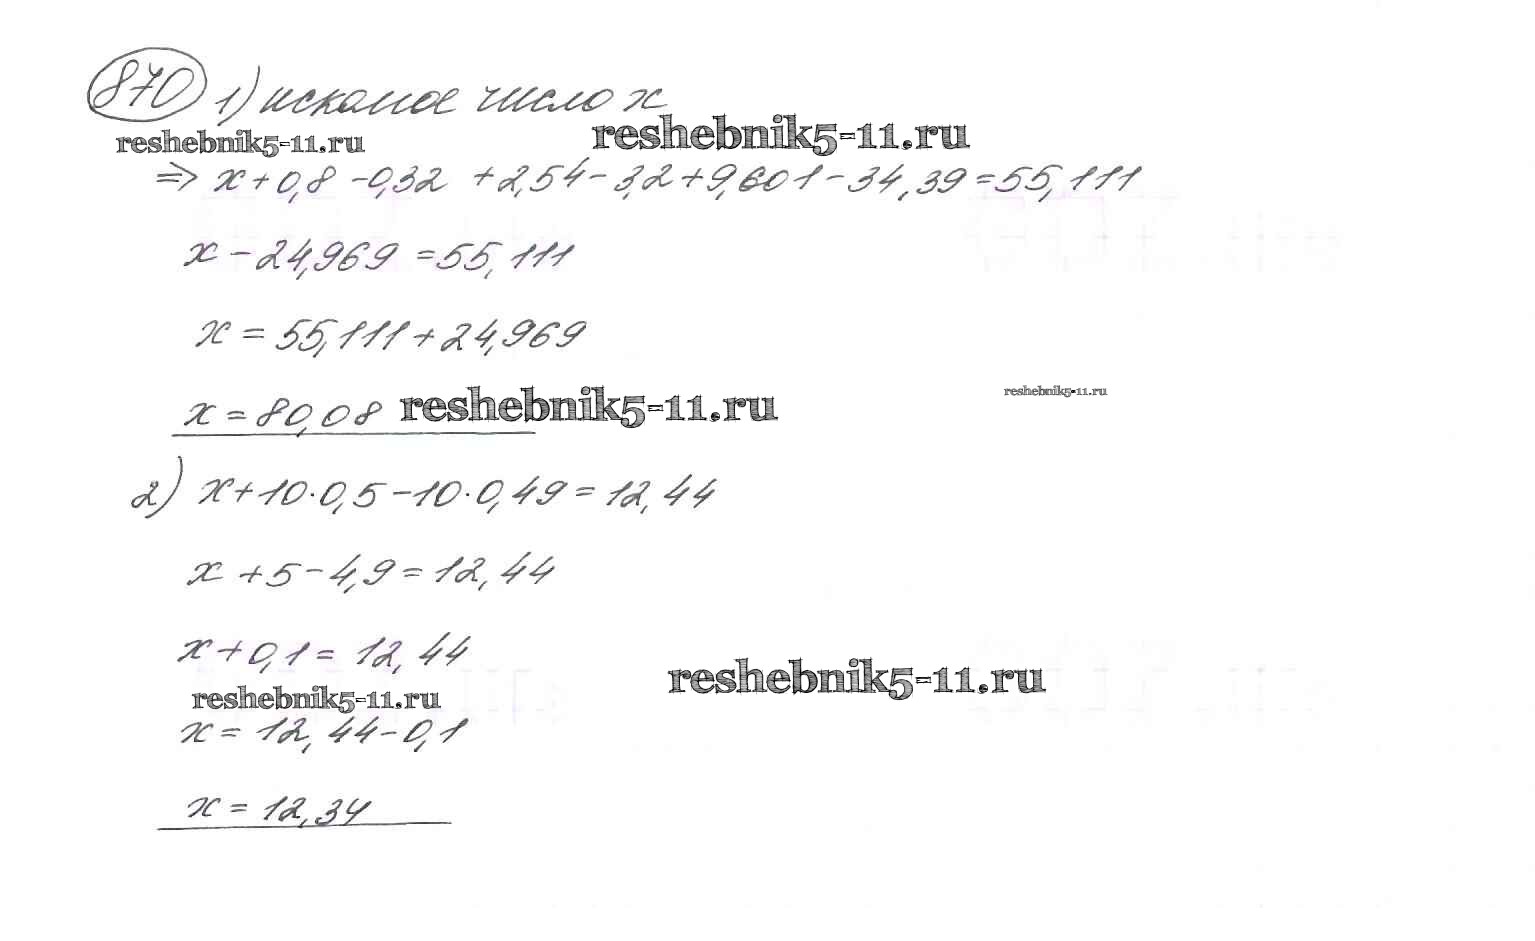 870 1) искомое число x
reshebnik5-11.ru reshebnik5-11.ru
=> x + 0,8 - 0,32 + 2,54 - 3,2 + 9,601 - 34,39 = 55,111
x - 24,969 = 55,111
x = 55,111 + 24,969
x = 80,08 reshebnik5-11.ru reshebnik5-11.ru
2) x + 10 · 0,5 - 10 · 0,49 = 12,44
x + 5 - 4,9 = 12,44
x + 0,1 = 12,44
reshebnik5-11.ru reshebnik5-11.ru
x = 12,44 - 0,1
x = 12,34